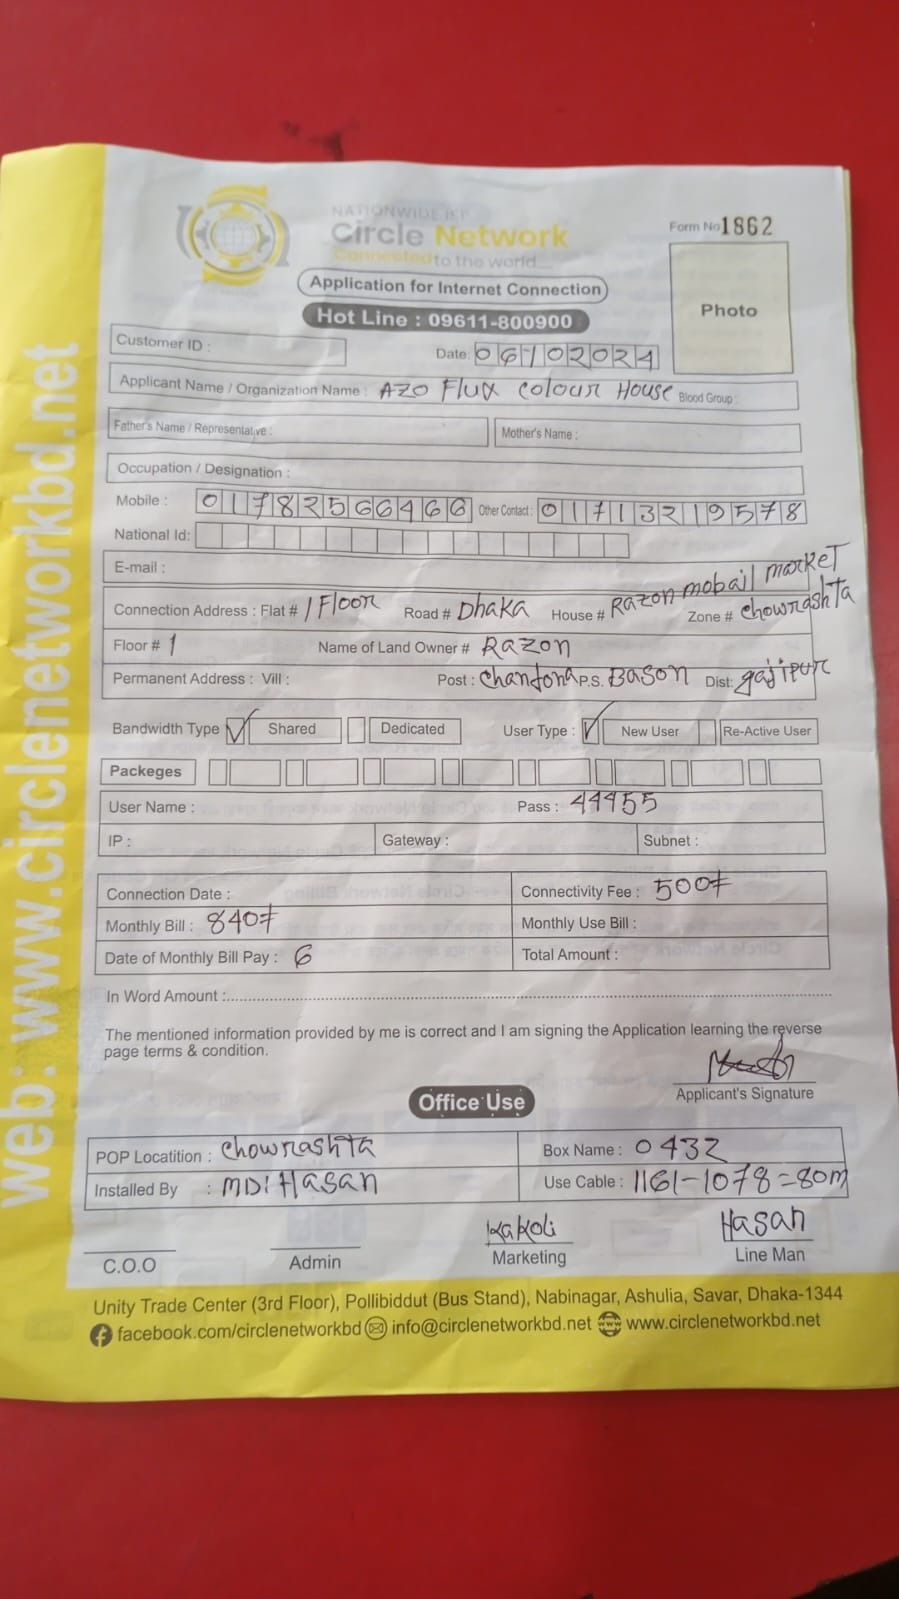 NATIONWIDE ISP
Circle Network
Connected to the world...
Form No 1862
Application for Internet Connection
Photo
Hot Line : 09611-800900
Customer ID :
Date: 06102024
Applicant Name / Organization Name : AZO Flux Colour House Blood Group :
Father's Name / Representative : Mother's Name :
Occupation / Designation :
Mobile : 01782566466 Other Contact : 01713219578
National Id:
E-mail :
Connection Address : Flat # 1 Floor Road # Dhaka House # Razon mobail market Zone # chowrashta
Floor # 1 Name of Land Owner # Razon
Permanent Address : Vill : Post : Chandona P.S. Bason Dist: gajipur
Bandwidth Type Shared Dedicated User Type : New User Re-Active User
Packeges
User Name : Pass : 44455
IP : Gateway : Subnet :
Connection Date : Connectivity Fee : 500/=
Monthly Bill : 840/= Monthly Use Bill :
Date of Monthly Bill Pay : 6 Total Amount :
In Word Amount :
The mentioned information provided by me is correct and I am signing the Application learning the reverse
page terms & condition.
Applicant's Signature
Office Use
POP Locatition : chowrashta Box Name : 0432
Installed By : MD: Hasan Use Cable : 1161-1078=80m
Kakoli Hasan
C.O.O Admin Marketing Line Man
Unity Trade Center (3rd Floor), Pollibiddut (Bus Stand), Nabinagar, Ashulia, Savar, Dhaka-1344
facebook.com/circlenetworkbd info@circlenetworkbd.net www.circlenetworkbd.net
web: www.circlenetworkbd.net